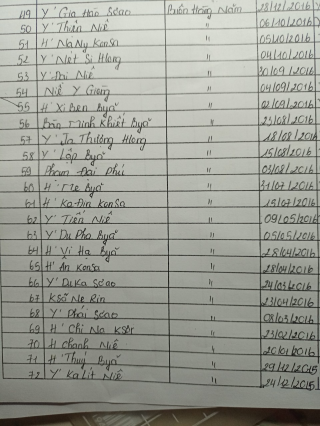 49 Y' Gia Hào Sêao Buôn Hang Năm 28/12/2016
50 Y' Thiên Niê " 06/10/2016
51 H' Na Ny Konsa " 05/10/2016
52 Y' Nét Si Hlong " 04/10/2016
53 Y' Đai Niê " 30/09/2016
54 Niê Y Giang " 04/09/2016
55 H' Xi Bien Byă " 02/09/2016
56 Trinh Khiết Byă " 23/08/2016
57 Y' Ja Thương Hlong " 18/08/2016
58 Y' Lập Byă " 15/08/2016
59 Phạm Đại Phú " 03/08/2016
60 H' Tre Byă " 31/07/2016
61 H' Ka Đin Konsa " 15/07/2016
62 Y' Tiến Niê " 09/05/2016
63 Y' Du Pha Byă " 05/05/2016
64 H' Vi Hạ Byă " 28/04/2016
65 H' Ân Konsa " 28/04/2016
66 Y' Duka Sêao " 24/03/2016
67 Ksă Ne Rin " 23/04/2016
68 Y' Phái Sêao " 08/03/2016
69 H' Chi Na Ksơr " 23/02/2016
70 H Chanh Niê " 20/01/2016
71 H' Thuý Byă " 29/12/2015
72 Y' Ka Lit Niê " 24/12/2015